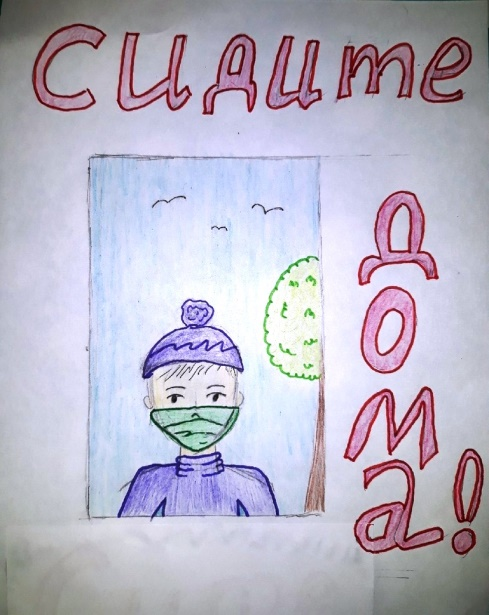 Сидите
дома!